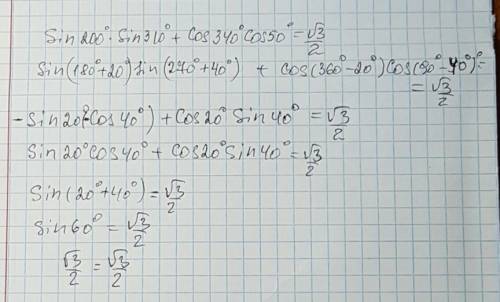 Sin200°·Sin310°+Cos340°Cos50°=√3/2
Sin(180°+20°)Sin(270°+40°) + Cos(360°-20°)Cos(90°-40°)=
=√3/2
-Sin20°(-Cos40°)+Cos20°Sin40°=√3/2
Sin20°Cos40°+Cos20°Sin40°=√3/2
Sin(20°+40°)=√3/2
Sin60°=√3/2
√3/2=√3/2